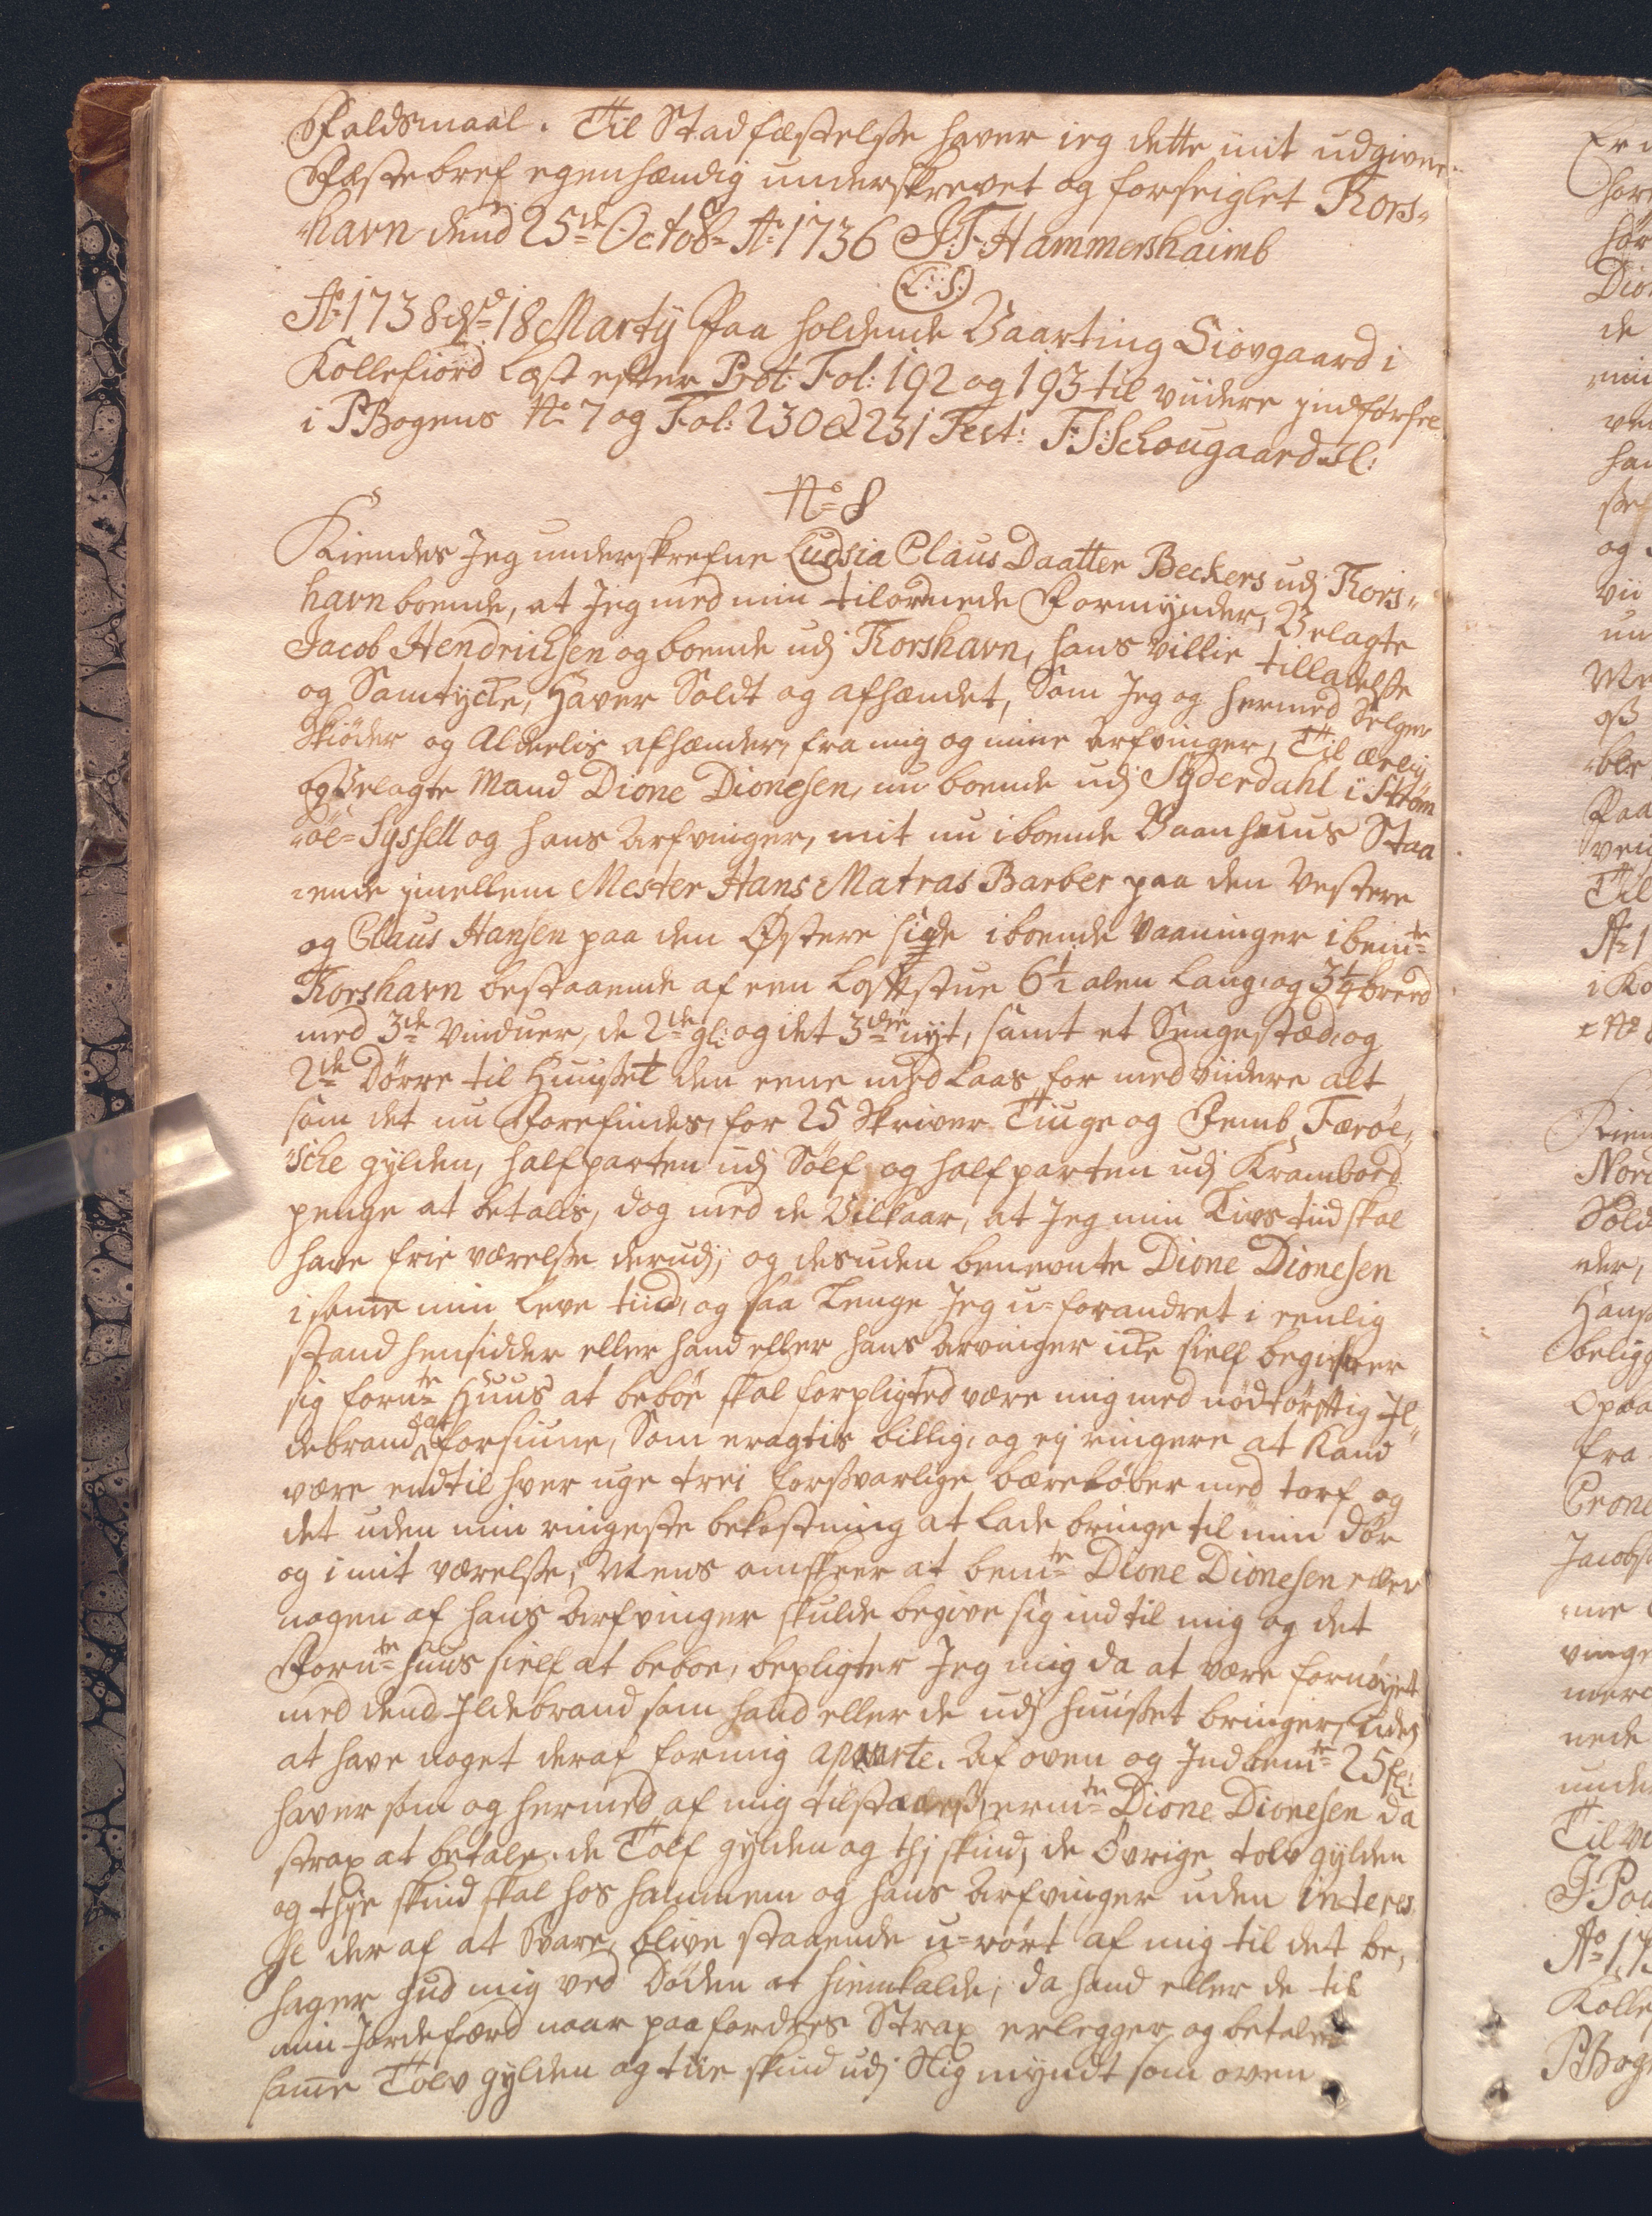 Faldsmaal. Til Stadfæstelsse haver ieg dette mit udgivne
Fæstebref egenhændig underskrevet og forseiglet Thors-
havn dend 25de Octobr Ao 1736 J: F: Hammershaimb
(L:S:)
Ao 1738 d 18 Martij Paa holdende Vaarting Siovgaard i
Kollefiord Læst efter Prot: Fol: 192 og 193 til viidere jndførsel
i PBogens No 7 og Fol: 230 & 231 Test: F: J: Schougaard
No 8
Kiendes Jeg underskrefne Ludsia Claus Daatter Beckers udj Thors-
havn boende, at Jeg med min tilordnede Formynder, Velagte
Jacob Hendrichsen og boende udj Thorshavn, hans villie tilladelsse
og Samtycke, Haver Soldt og afhændet, Som Jeg og hermed Selger
Skiøder og Aldeelis afhænder, fra mig og mine Arfvinger, Til ærlig
og Velagte Mand Dione Dionesen, nu boende udj Syderdahl i Strøm
-øe-Syssell og hans Arfvinger, mit nu iboende Vaanhuus Staa
-ende jmellem Mester Hans Matras Barber paa den Vestere
og Claus Hansen paa den Østere side iboende Vaaninger i bemte
Thorshavn bestaaende af een Loftstue 6½ alen Lang, og 3¼ breed
med 3de Vinduer, de 2de gl: og det 3die nyt, samt et Sengested, og
2de Dørre til Huusset den eene med Laas for med viidere alt
som det nu Forefindes, for 25 Skriver Tiuge og Femb Færøe-
-sche gylden, halfparten udj Sølf, og halfparten udj Krambord
penge at betalis, dog med de Vilkaar, at Jeg min Livs tiid skal
have frie værelsse derudj; og desuden benevnte Dione Dionesen
i samme min Leve tiid, og saa Lenge Jeg u-forandret i eenlig
stand hensidder eller hand eller hans Arvinger icke sielf begierer
sig fornte Huus at beboe skal forpligted være mig med nødtørftig Jl-
debrand at forsiune, Som eragtis billig, og ej ringere at kand
være end til hver uge trei forssvarlige bæreløber med torf og
det uden min ringeste bekostning at Lade bringe til min dør
og i mit værelsse; Mens omskeer at bemte Dione Dionesen eller
nogen af hans Arfvinger skulde begive sig ind til mig og det
Fornte huus sielf at beboe, bepligter Jeg mig da at være fornøyet
med dend Jldebrand som hand eller de udj huusset bringer, uden
at have noget deraf for mig aparte. Af oven og Jndbemte 25 gl:
haver som og hermed af mig tilstaaes, ermte Dione Dionesen da
strax at betale de Tolf gylden og thj skind; de Øvrige tolv gylden
og thje skind skal hos hannem og hans Arfvinger uden interes
se der af at Svare, blive staaende u-rørt af mig til det be-
hager Gud mig ved Døden at hiemkalde; da hand eller de til
min Jordefærd naar paafordres Strax erlegger og betaler
samme Tolv gylden og tiie skind udj Slig myndt som oven